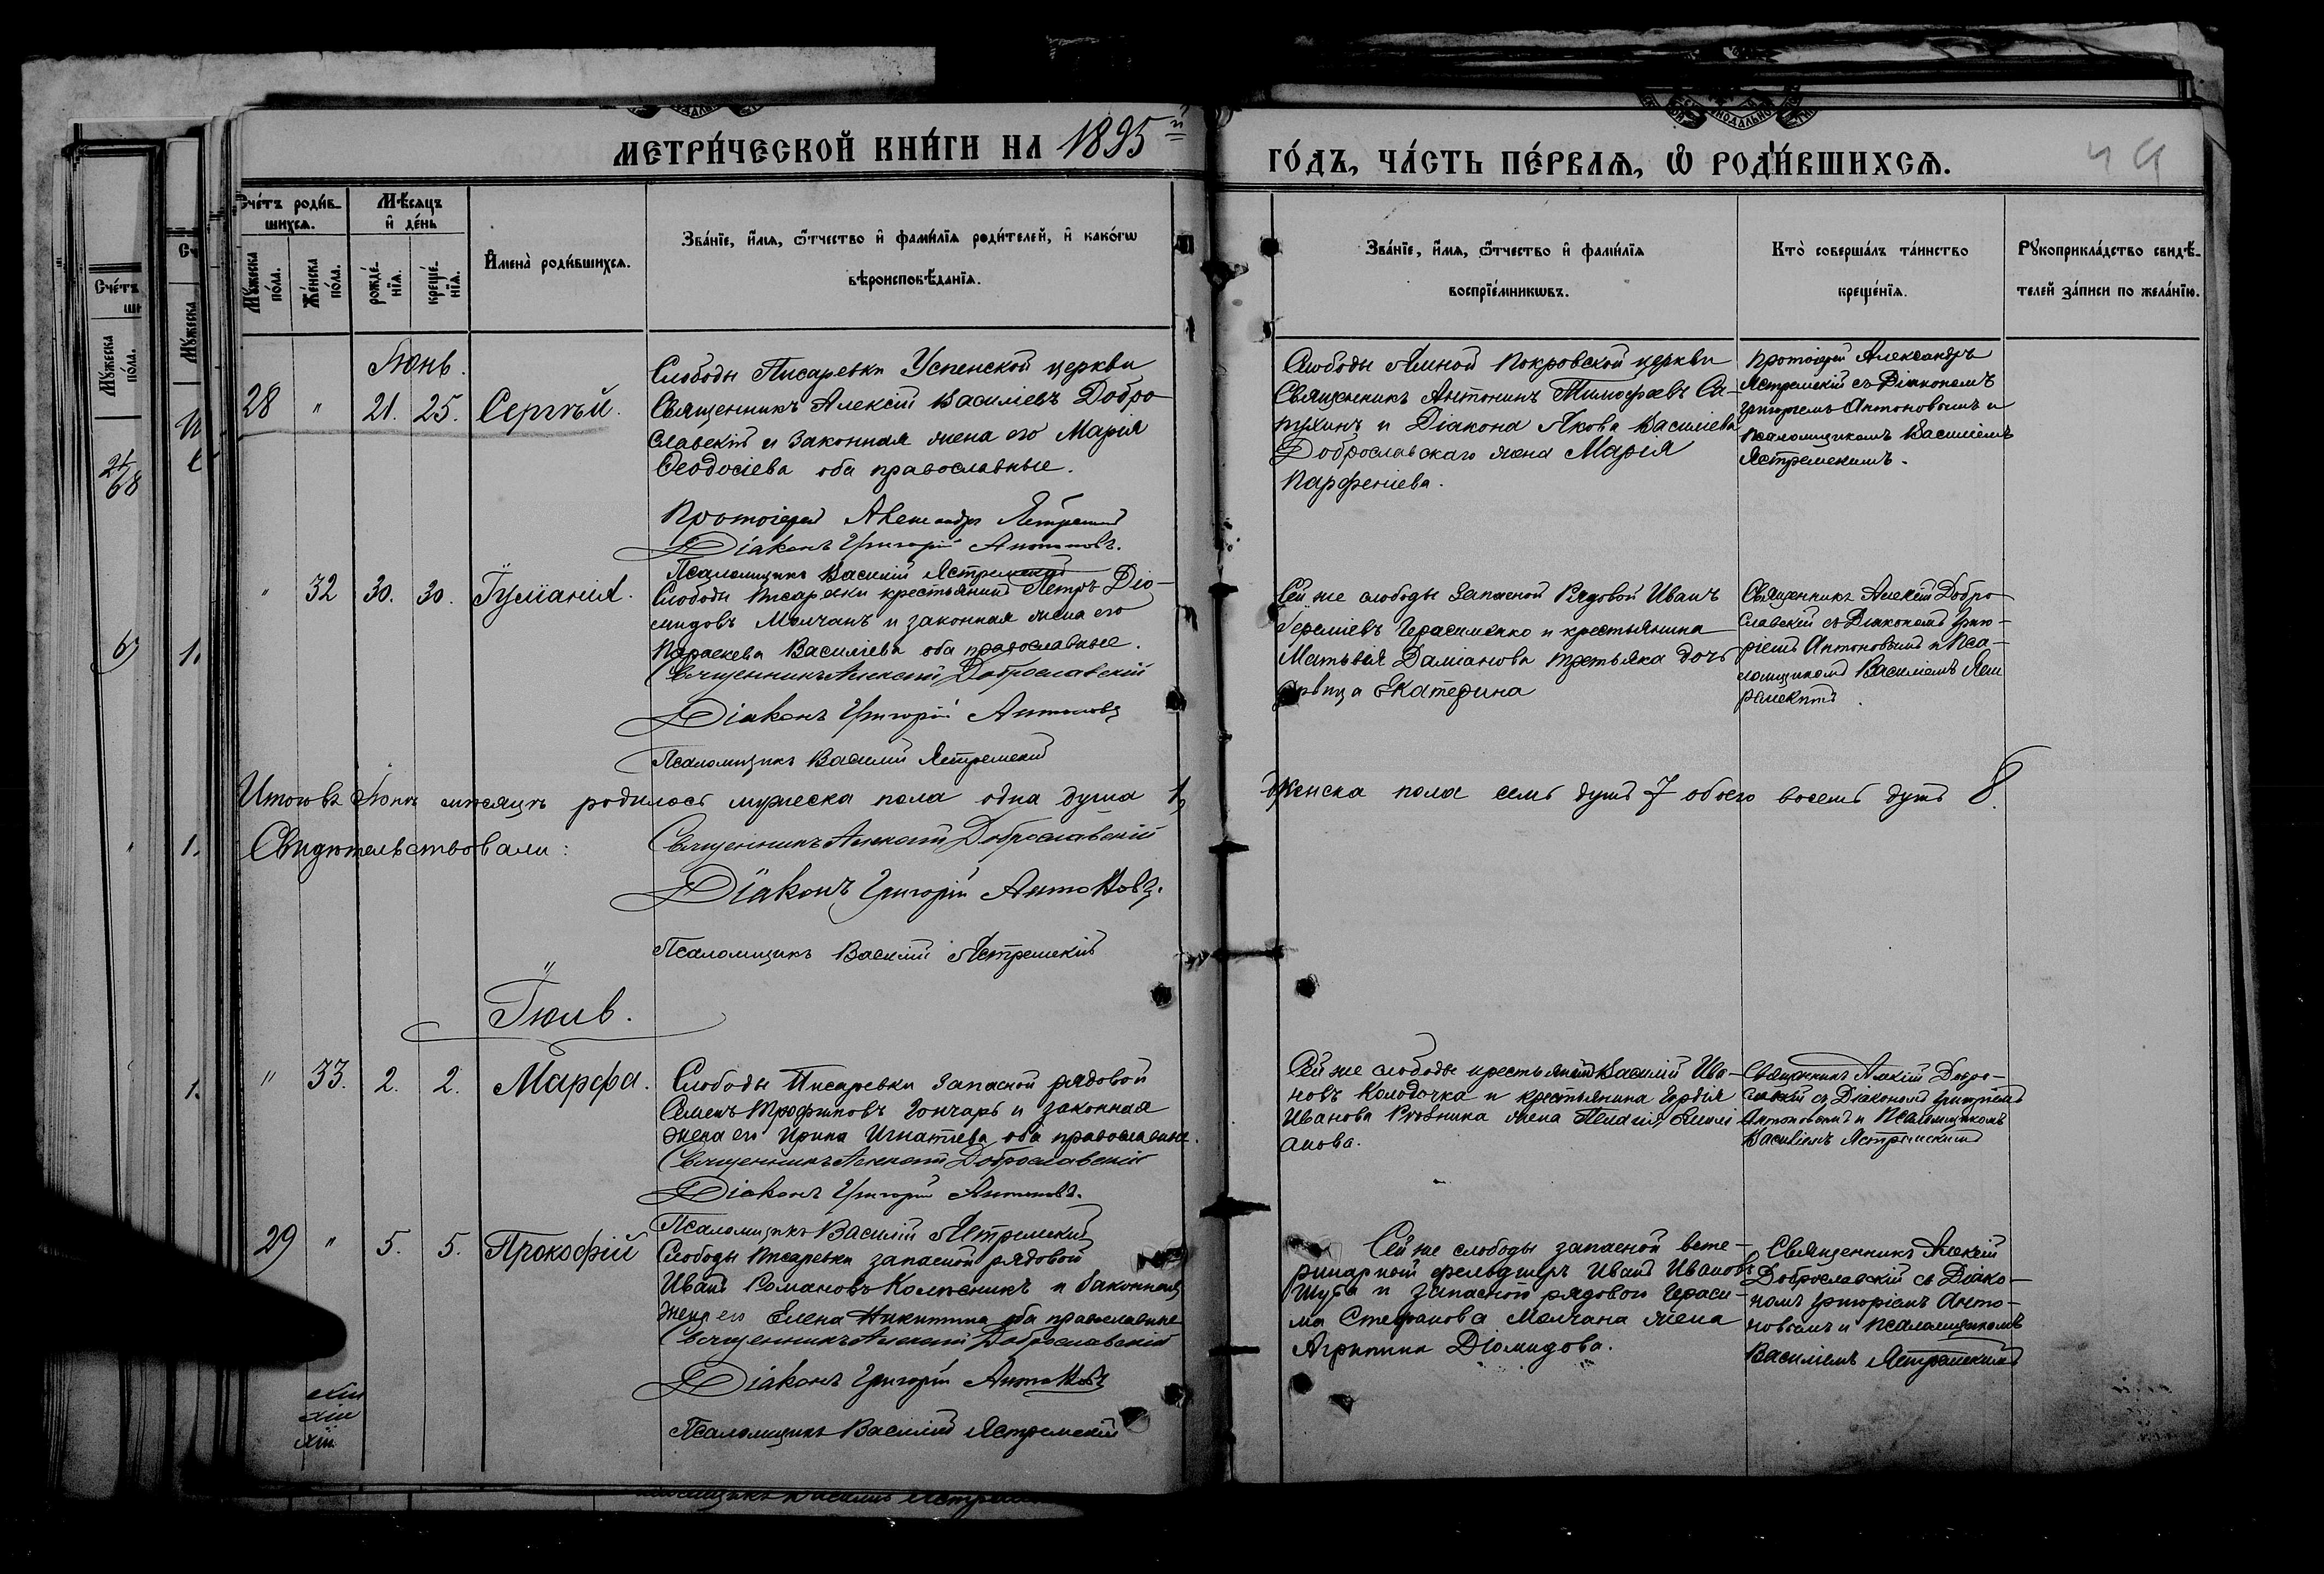 МЕТРИ́ЧЕСКОЙ КНИ́ГИ НА 1895й
ГО́ДЪ, ЧА́СТЬ ПЕ́РВАѦ, Ѡ҆ РОДИ́ВШИХСѦ.
Счéтъ роди́в-
шихсѧ.
Мѣ́сяцъ
и҆ дéнь
Мꙋ́жеска
пóла.
Жéнска
пóла.
рождé-
нїѧ.
крещé-
нїѧ.
И҆мена̀ роди́вшихсѧ.
Зва́нїе, и҆́мѧ, ѻ҆́тчество и҆ фами́лїѧ роди́телей, и҆ како́гѡ
вѣроисповѣ́данїѧ.
Зва́нїе, и҆́мѧ, ѻ҆́тчество и҆ фами́лїѧ
воспрїéмникѡвъ.
Кто̀ соверша́лъ та́инство
крещéнїѧ.
Рꙋкоприкла́дство свидѣ́-
телей за́писи по жела́нїю.
Іюнь.
28 " 21. 25. Сергѣй.
Слободы Писаревки Успенской церкви
Священникъ Алексій Василіевъ Добро-
славскій и законная жена его Марія
Ѳеодосіева оба православные.
Протоіерей Александръ Ястремскій
Діаконъ Григорій Антоновъ.
Псаломщикъ Василій Ястремскій
Слободы Ямной Покровской церкви
Священникъ Антонинъ Тимофеевъ
и Діакона Якова Василіева
Доброславскаго жена Марія
Парфеніева.
Протоіерей Александръ
Ястремскій съ Діакономъ
Григоріемъ Антоновымъ и
Псаломщикомъ Василіемъ
Ястремскимъ.
" 32 30. 30. Іуліанія.
Слободы Писаревки крестьянинъ Петръ Діо-
мидовъ Молчанъ и законная жена его
Параскева Василіева оба православные.
Священникъ Алексій Доброславскій
Діаконъ Григорій Антоновъ
Псаломщикъ Василій Ястремскій
Сей же слободы запасной Рядовой Иванъ
Іереміевъ Герасименко и крестьянина
Матвѣя Даміанова Третьяка дочь
дѣвица Екатерина
Священникъ Алексій Добро-
славскій съ Діакономъ Григо-
ріемъ Антоновымъ и Пса-
ломщикомъ Василіемъ
Итого въ Іюнѣ мѣсяцѣ родилось мужеска пола одна душа 1,
женска пола семь душъ 7 обоего восемь душъ 8.
Свидѣтельствовали:
Священникъ Алексій Доброславскій
Діаконъ Григорій Антоновъ.
Псаломщикъ Василій Ястремскій
Іюль.
" 33. 2. 2. Марфа.
Слободы Писаревки запасной рядовой
Семенъ Трофимовъ Гончаръ и законная
жена его Ирина Игнатіева оба православные.
Священникъ Алексій Доброславскій
Діаконъ Григорій Антоновъ.
Псаломщикъ Василій Ястремскій
Сей же слободы крестьянинъ Василій Ива-
новъ Колодочка и крестьянина Гордія
Иванова жена Пелагія
анова.
Священникъ Алексій Добро-
славскій съ Діакономъ Григоріемъ
Антоновымъ и Псаломщикомъ
Василіемъ Ястремскимъ
29 " 5. 5. Прокофій
Слободы Писаревки запасной рядовой
Иванъ Романовъ Колѣсникъ и законная
жена его Елена Никитина оба православные
Священникъ Алексій Доброславскій
Діаконъ Григорій Антоновъ
Псаломщикъ Василій Ястремскій
Сей же слободы запасной вете-
ринарной фельдшеръ Иванъ Ивановъ
Шуба и запасного рядового Гераси-
ма Стефанова Молчана жена
Агрипина Діомидова.
Священникъ Алексій
Доброславскій съ Діако-
номъ Григоріемъ Анто-
новымъ и Псаломщикомъ
Василіемъ Ястремскимъ